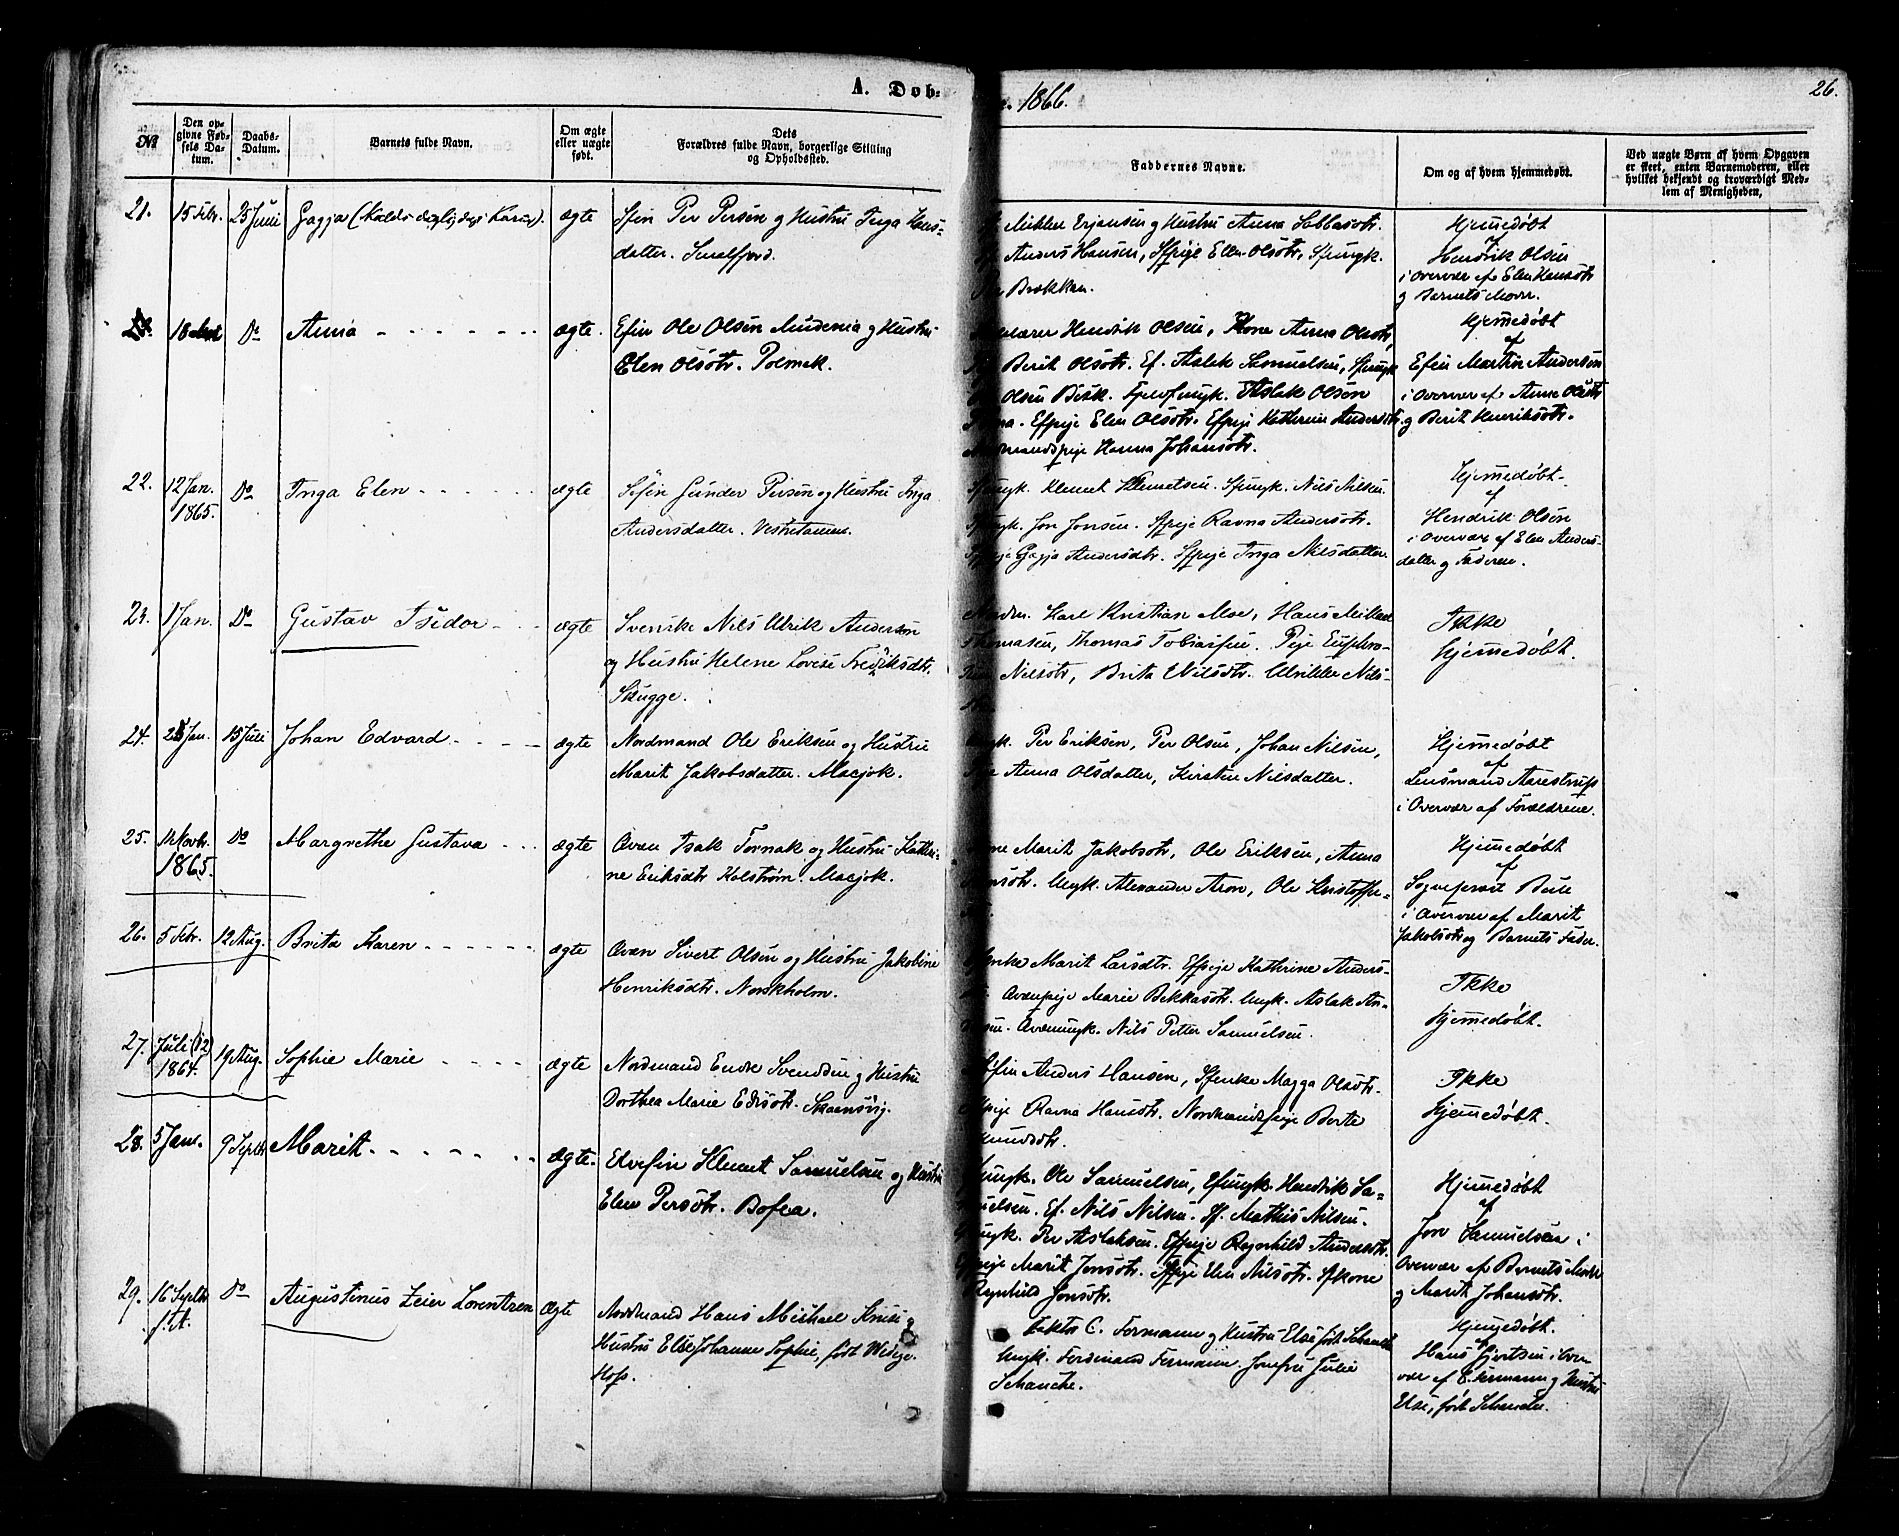 A. Døb-
1866.
26.
№
Den op-
givne Fød-
sels Da-
tum.
Daabs-
Datum.
Barnets fulde Navn.
Om ægte
eller uægte
født.
Dets
Forældres fulde Navn, borgerlige Stilling
og Opholdssted.
Faddernes Navne.
Om og af hvem hjemmedøbt.
Ved uægte Børn af hvem Opgaven
er skeet, enten Barnemoderen, eller
hvilket bekjendt og troværdigt Med-
lem af Menigheden,
21. 15 Febr. 25 Juni Gagja (kaldes daglig dags Karen). ægte
Sfin Per Persen og Hustru Inga Hans-
datter. Smalfjord.
Mikkel Erjansen og Hustru Anna Sabbasdtr.
Anders Hansen, Sfpige Ellen Olsdtr, Sfungk.
Brækken.
Hjemmedøbt
af
Hendrik Olsen
i Overvær af Elen Hansdtr
og Barnets Moder.
18 Do Anna ægte.
Efin Ole Olsen Mudenia og Hustru
Elen Olsdtr. Polmak.
Hendrik Olsen, Kone Anna Olsdtr,
Berit Olsdtr. Ef. Aslak Samuelsen, Sfungk
Olsen Bisk. Fjeldfungk. Aslak Olsen
Efpige Elen Olsdtr. Efpige Katherine Andersdtr
Hanna Johansdtr.
Hjemmedøbt
af
Efin Martin Andersen
i Overvær af Anna Olsdtr
og Berit Henriksdtr.
22. 12 Jan.
1865. Do Inga Elen ægte
Søfin Gunder Persen og Hustru Inga
Andersdatter. Vestertanen.
Sfungk. Klemet Klemetsen. Sfungk. Nils Nilsen.
Jon Jonsen. Sfpige Ravna Andersdtr.
Gagja Andersdtr. Sfpige Inga Nilsdatter
Hjemmedøbt
af
Hendrik Olsen
i Overvær af Elen Anders-
datter og Faderen.
23. 1 Jan. Do Gustav Isidor ægte
Svenske Nils Ulrik Andersen
og Hustru Helene Lovise Fredriksdtr.
Skugge.
Karl Kristian Moe, Hans Mikkel
Thomasen, Thomas Tobiassen. Pige Euphro-
Nilsdtr, Brita Nilsdtr. Ulrikke Nils-
Ikke
Hjemmedøbt.
24. Jan. 15 Juli Johan Edvard ægte
Nordmand Ole Eriksen og Hustru
Marit Jakobsdatter. Masjok.
Per Eriksen, Per Olsen, Johan Nilsen,
Anna Olsdatter, Kirsten Nilsdatter.
Hjemmedøbt
af
Lensmand Aarestrup
i Overvær af Forældrene.
25. Novbr.
1865. Do Margrethe Gustava ægte
Qvæn Isak Tornak og Hustru Kathri-
ne Eriksdtr Kolstrøm. Masjok.
Marit Jakobsdtr, Ole Eriksen, Anna
Ungk. Alexander Aron, Ole Kristoffe-
Hjemmedøbt
af
Sogneprest
i Overvær af Marit
Jakobsdtr og Barnets Fader.
26. 5 Febr. 12 Aug. Brita Karen ægte
Qvæn Sivert Olsen og Hustru Jakobine
Henriksdtr. Norskholm.
Marit Larsdtr. Efpige Kathrine Anders-
Qvænpige Marie Bekkasdtr. Ungk. Aslak An-
Qvænungk. Nils Petter Samuelsen.
Ikke
Hjemmedøbt.
27. Juli (12)
1864. 19 Aug. Sophie Marie ægte
Nordmand Endre Svendsen og Hustru
Dorthea Marie
Anders Hansen, Sfenke Magga Olsdtr.
Ravna Hansdtr. Nordmandspige Berte
Ikke
Hjemmedøbt.
28. 5 Janr. 9 Septbr Marit. ægte.
Elvefin Klemet Samuelsen og Hustru
Elen Persdtr. Bofea.
Ole Samuelsen, Efungk. Hendrik Sa-
muelsen. Ef. Nils Nilsen. Sf. Mathis Nilsen.
Per Aslaksen. Efpige Ragnhild Andersdtr.
Marit Jonsdtr. Sfpige Elen Nilsdtr. Sfkone
Ragnhild Jonsdtr.
Hjemmedøbt
af
Jon Samuelsen i
Overvær af Barnets Moder
og Marit Johansdtr.
29. 16 Septbr
f. A. Do Augustinus Zeier Lorentzen ægte
Nordmand Hans Michael Kruse og
Hustru Else Johanne Sophie, født Wedege.
Hops.
C. Formann og Hustru Else født Schanche
Ungk. Ferdinand Formann. Jomfru Julie
Schanche.
Hjemmedøbt.
af
Hans Hjortsen i Over-
vær af C. Formann og Hustru
Else, født Schanche.